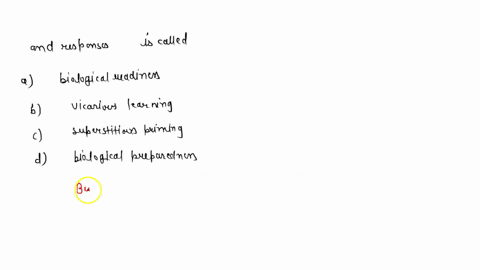 and responses is called
a) biological readiness
b) vicarious learning
c) superstitious priming
d) biological preparedness
Bu